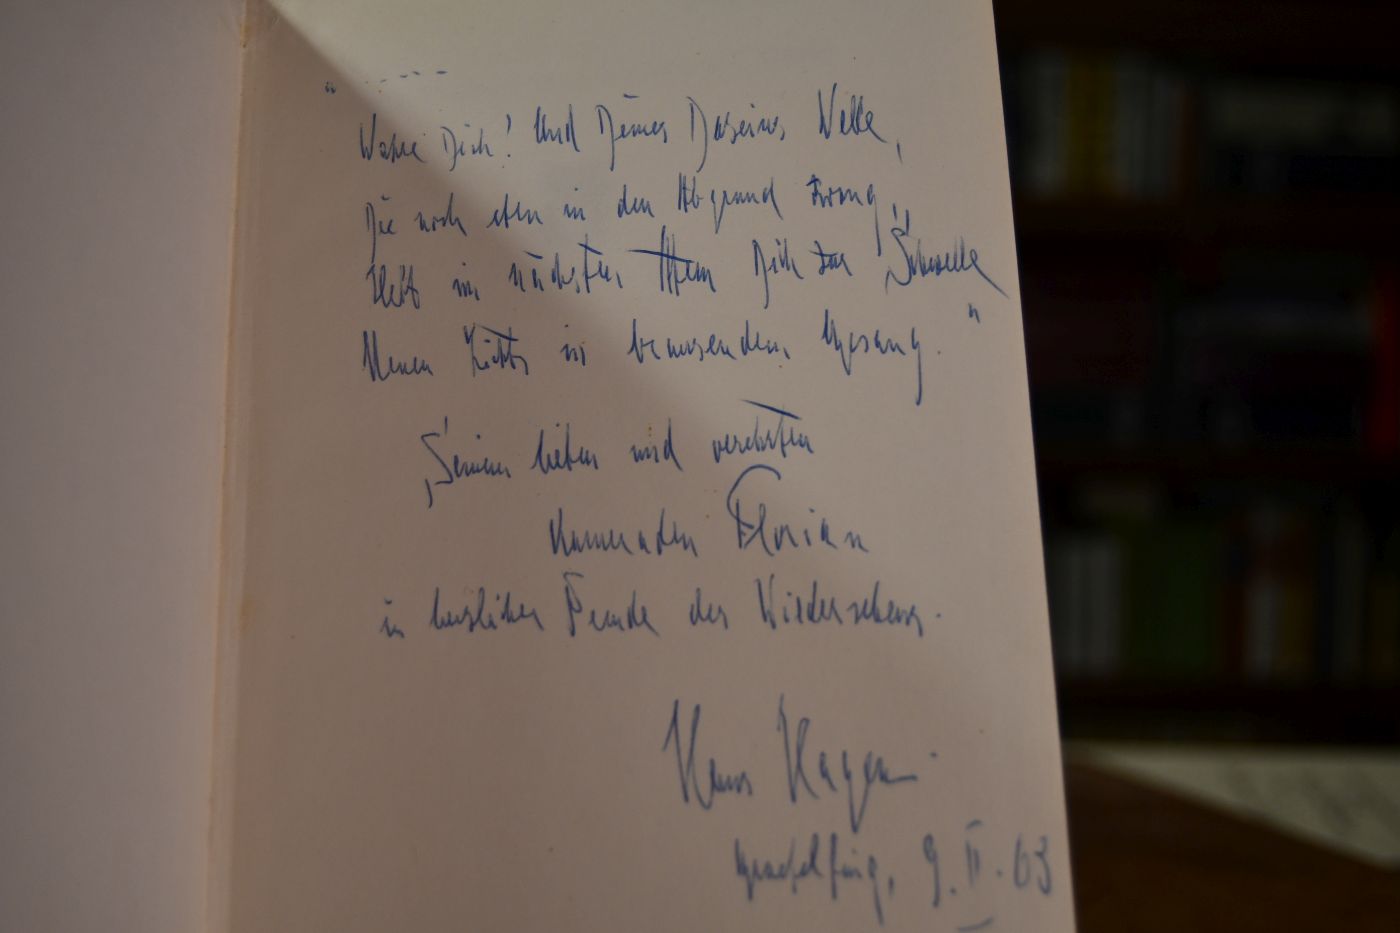 " - - - - -
Wahre Dich! Und Deines Daseins Welle,
Die noch eben in den Abgrund zwang,
Hebt im nächsten Atem Dich zur Schwelle
Neuen Lichts in brausendem Gesang. "
Seinem lieben und verehrten
Kameraden Florian
in herzlicher Freude des Wiedersehens.
Hans Hagen.
Graefelfing, 9. II. 63